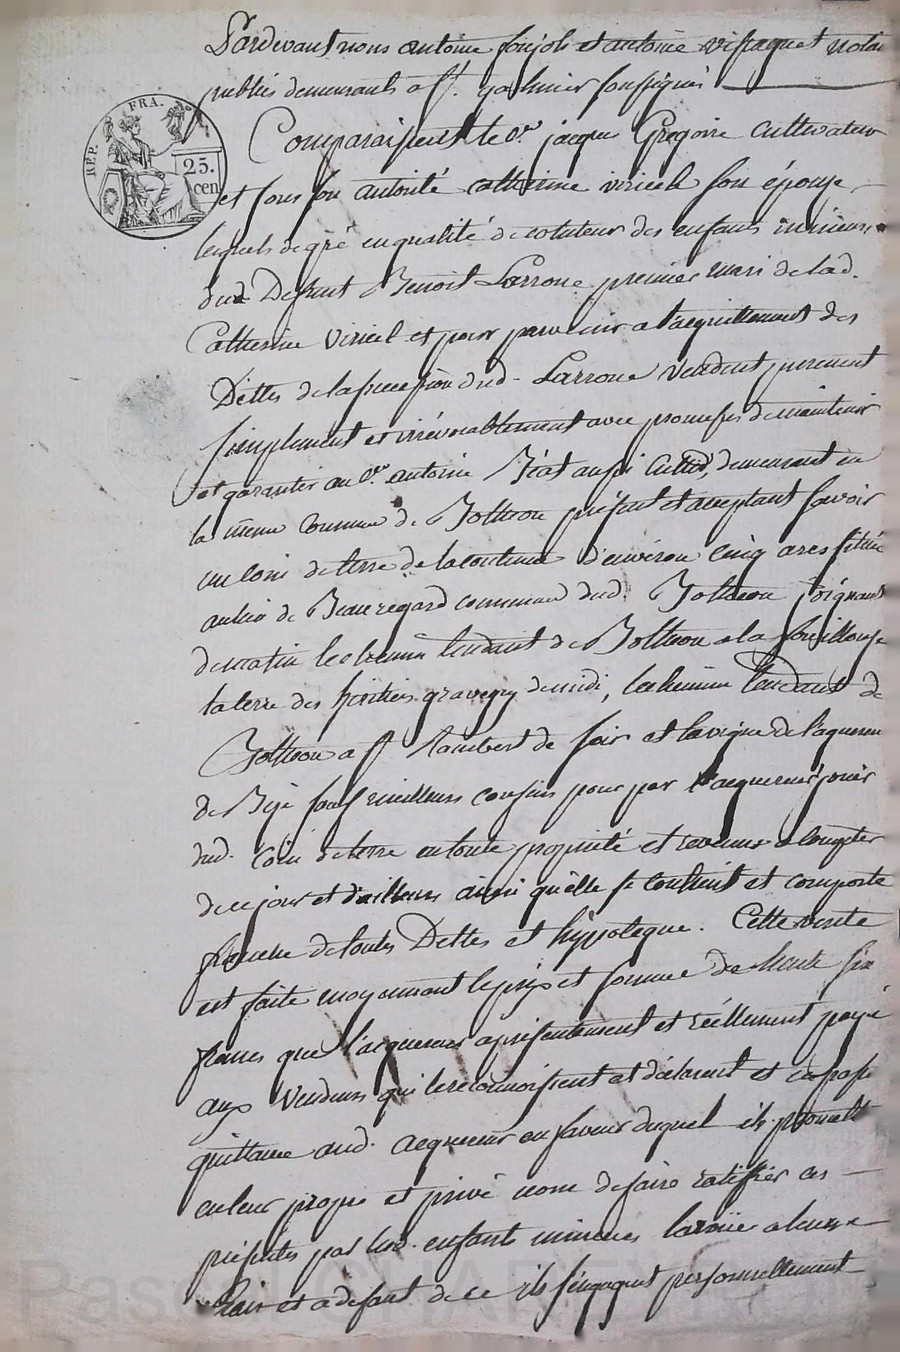 Pardevant nous antoine et antoine notai
publics demeurants a st. galmier soussignés
RÉP. FRA.
25.
cen
Comparaissent le Cen. jacque Gregoire cultivateur
et sous son autorité catherine viricel son épouse
lesquels de gré en qualité de cotuteur des enfants mineurs
dud Defunt Benoit Larroue premier mari de lad.
Catherine Viricel et pour parvenir a l'acquittement des
Dettes de la succession dud. Larroue vendent purement
simplement et irrévocablement avec promesses de maintenir
et garantir au Cen. antoine Béat aussi Cultivr, demeurant en
la meme Commune de Bolthéon présent et acceptant savoir
un coin de terre de la contenue d'environ cinq ares située
au lieu de Beauregard commune dud. Bolthéon joignant
de matin le chemin tendant de Bolthéon a la fouillouse
la terre des héritiers de midi, le chemin tendant de
Bolthéon a st. Rambert de soir et la vigne de l'aquereur
de Bize sauf meilleurs confins pour par l'acquereur jouir
dud. Coin de terre en toute propriété et revenus a compter
de ce jour et d'ailleurs ainsi qu'elle se contient et comporte
franche de toutes Dettes et hÿpoteque. Cette vente
est faite moyennant le prix et somme de trente six
francs que l'acquereur a présentement et réellement payé
aux Vendeurs qui le reconnoissent et déclarent et en passe
quittance aud. acquereur en faveur duquel ils promett
en leur propre et privé nom de faire ratifier ces
présentes par lesd. enfants mineurs larroue a leurs
frais et a defaut de ce ils s'engagent personnellement